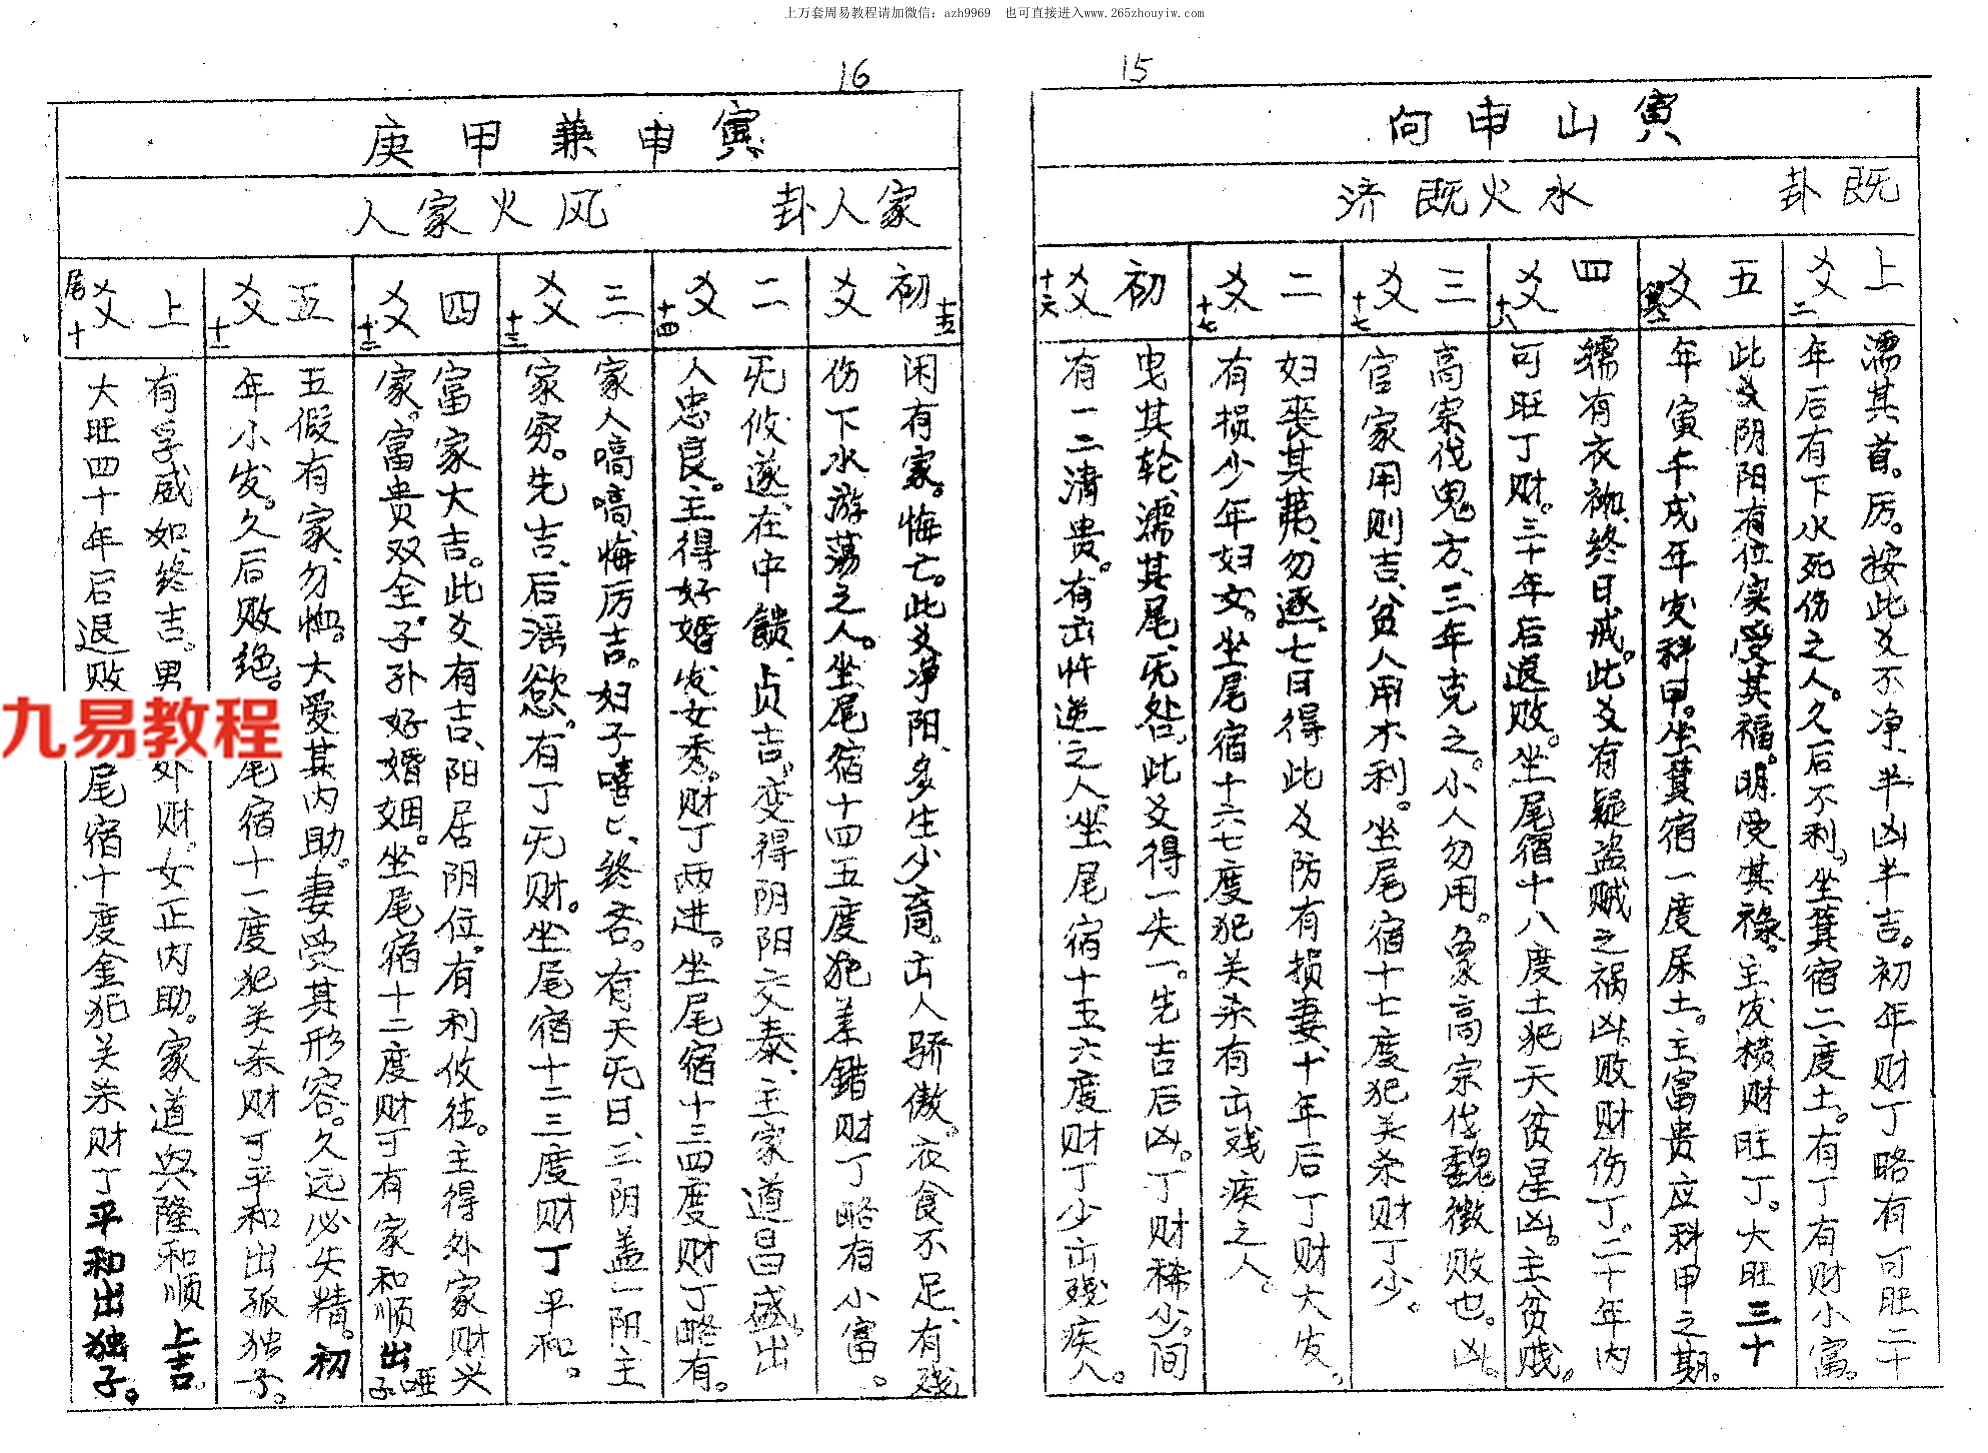 上万套周易教程请加微信：azh9969　也可直接进入www.265zhouyiw.com
15
寅山申向
既卦　水火既济
上爻二
濡其首。厉。按此爻不净、半凶半吉。初年财丁略有可旺二十
年后有下水死伤之人。久后不利。坐箕宿二度土。有丁有财小富。
五爻箕一
此爻阴阳有位实受其福。明受其禄。主发横财旺丁。大旺三十
年寅午戌年发科甲。坐箕宿一度尿土。主富贵应科甲之期。
四爻十八
繻有衣袽、终日戒。此爻有疑盗贼之祸凶、败财伤丁。二十年内
可旺丁财。三十年后退败。坐尾宿十八度土犯天贫星凶。主贫贱。
三爻十七
高宗伐鬼方、三年克之。小人勿用。象高宗伐魏徵败也。凶。
官家用则吉、贫人用不利。坐尾宿十七度犯关杀财丁少。
二爻十七
妇丧其茀、勿逐。七日得此爻防有损妻、十年后丁财大发。
有损少年妇女。坐尾宿十六七度犯关杀有出残疾之人。
初爻十六
曳其轮、濡其尾、旡咎、此爻得一失一。先吉后凶。丁财稀少。间
有一二清贵。有出忤逆之人、坐尾宿十五六度财丁少出残疾人。
16
寅申兼甲庚
家人卦　风火家人
初爻十五
闲有家。悔亡。此爻净阳、多生少育。出人骄傲。衣食不足、有残
伤下水游荡之人。坐尾宿十四五度犯差错财丁略有小富。
二爻十四
旡攸遂、在中馈、贞吉。变得阴阳交泰、主家道昌盛。出
人忠良。主得好婚发女秀。财丁两进。坐尾宿十三四度财丁略有。
三爻十三
家人嗃嗃、悔厉吉。妇子嘻〻、终吝。有天旡日、三阴盖一阳、主
家穷。先吉、后淫欲。有丁旡财。坐尾宿十二三度财丁平和。
四爻十二
富家大吉。此爻有吉、阳居阴位。有利攸往。主得外家财兴
家。富贵双全子孙好婚姻。坐尾宿十二度财丁有家和顺出哑子
五爻十一
五假有家、勿恤。大爱其内助。妻受其形容。久远必失精。初
年小发。久后败绝。尾宿十一度犯关杀财丁平和出孤独子。
上爻尾十
有孚威如、终吉。男外财。女正内助。家道兴隆和顺上吉。
大旺四十年后退败尾宿十度金犯关杀财丁平和出独子。
九易教程